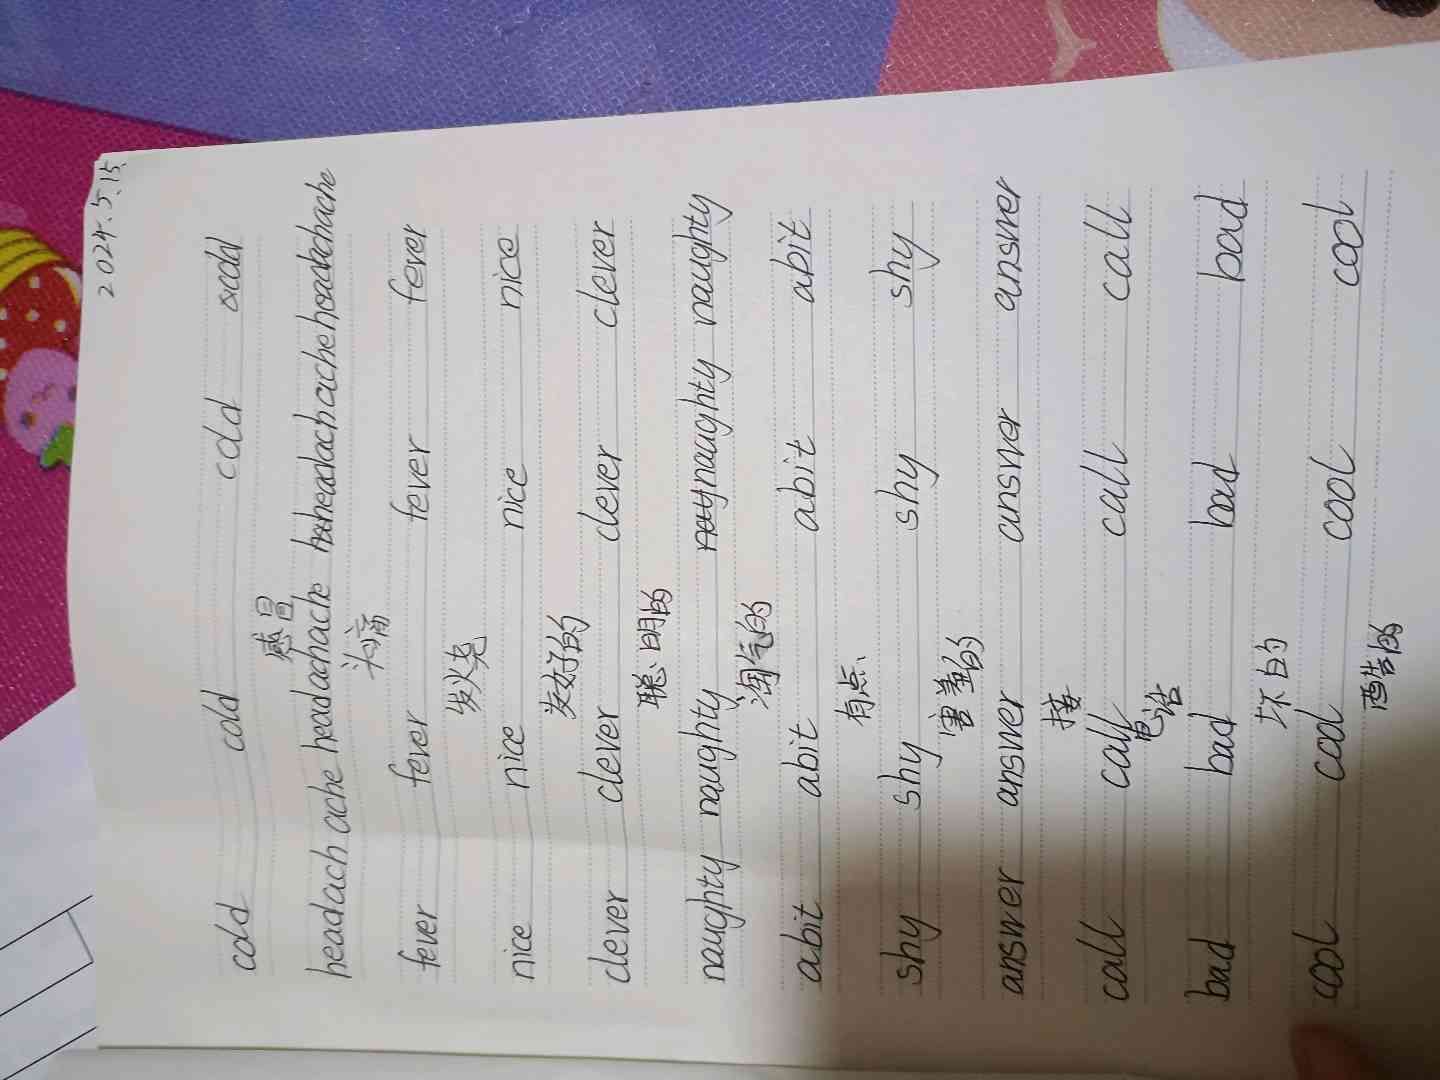 2024.5.15
cold cold cold cold
感冒
headachache headachache headachache headachache
头痛
fever fever fever fever
发火尧
nice nice nice nice
友好的
clever clever clever clever
聪明的
naughty naughty naughty naughty
淘气的
abit abit abit abit
有点
shy shy shy shy
害羞的
answer answer answer answer
接
call call call call
电话
bad bad bad bad
坏的
cool cool cool cool
酷的